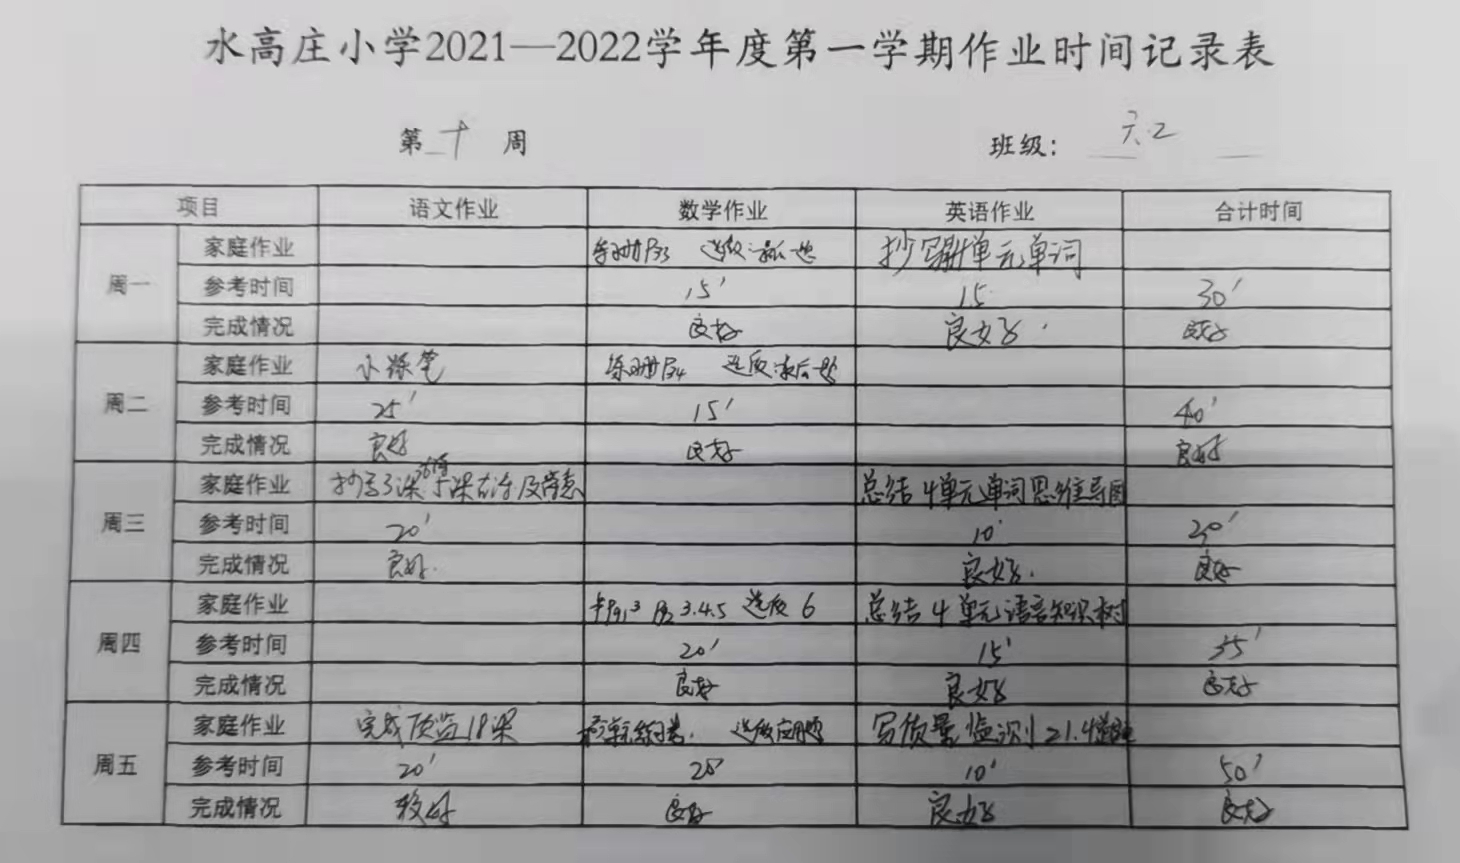 水高庄小学2021—2022学年度第一学期作业时间记录表
第 十 周 班级： 六.2
项目 语文作业 数学作业 英语作业 合计时间
周一
家庭作业 练习册P33 选做 抄写 单元单词
参考时间 15' 15 30'
完成情况 良好 良好. 良好
周二
家庭作业 小练笔 练习册P34 选做 最后一题
参考时间 25' 15' 40'
完成情况 良好 良好 良好
周三
家庭作业 抄写3课 总结4单元单词思维导图
参考时间 20' 10' 30'
完成情况 良好. 良好. 良好
周四
家庭作业 3.4.5 选做 6 总结4单元语言知识树
参考时间 20' 15' 35'
完成情况 良好 良好 良好
周五
家庭作业 完成质监18课 选做应用题 写质量监测
参考时间 20' 20' 10' 50'
完成情况 较好 良好 良好 良好